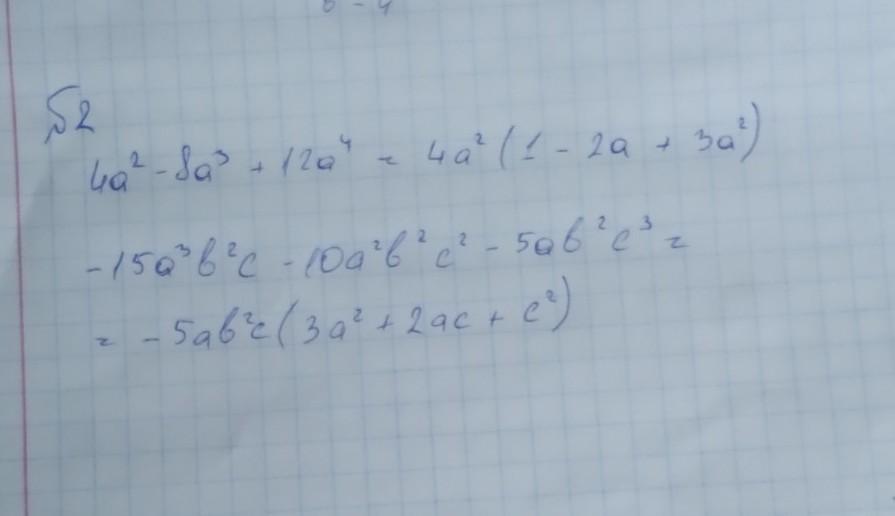 №2
4a² - 8a³ + 12a⁴ = 4a² (1 - 2a + 3a²)
-15a³b²c - 10a²b²c² - 5ab²c³ =
= -5ab²c (3a² + 2ac + c²)